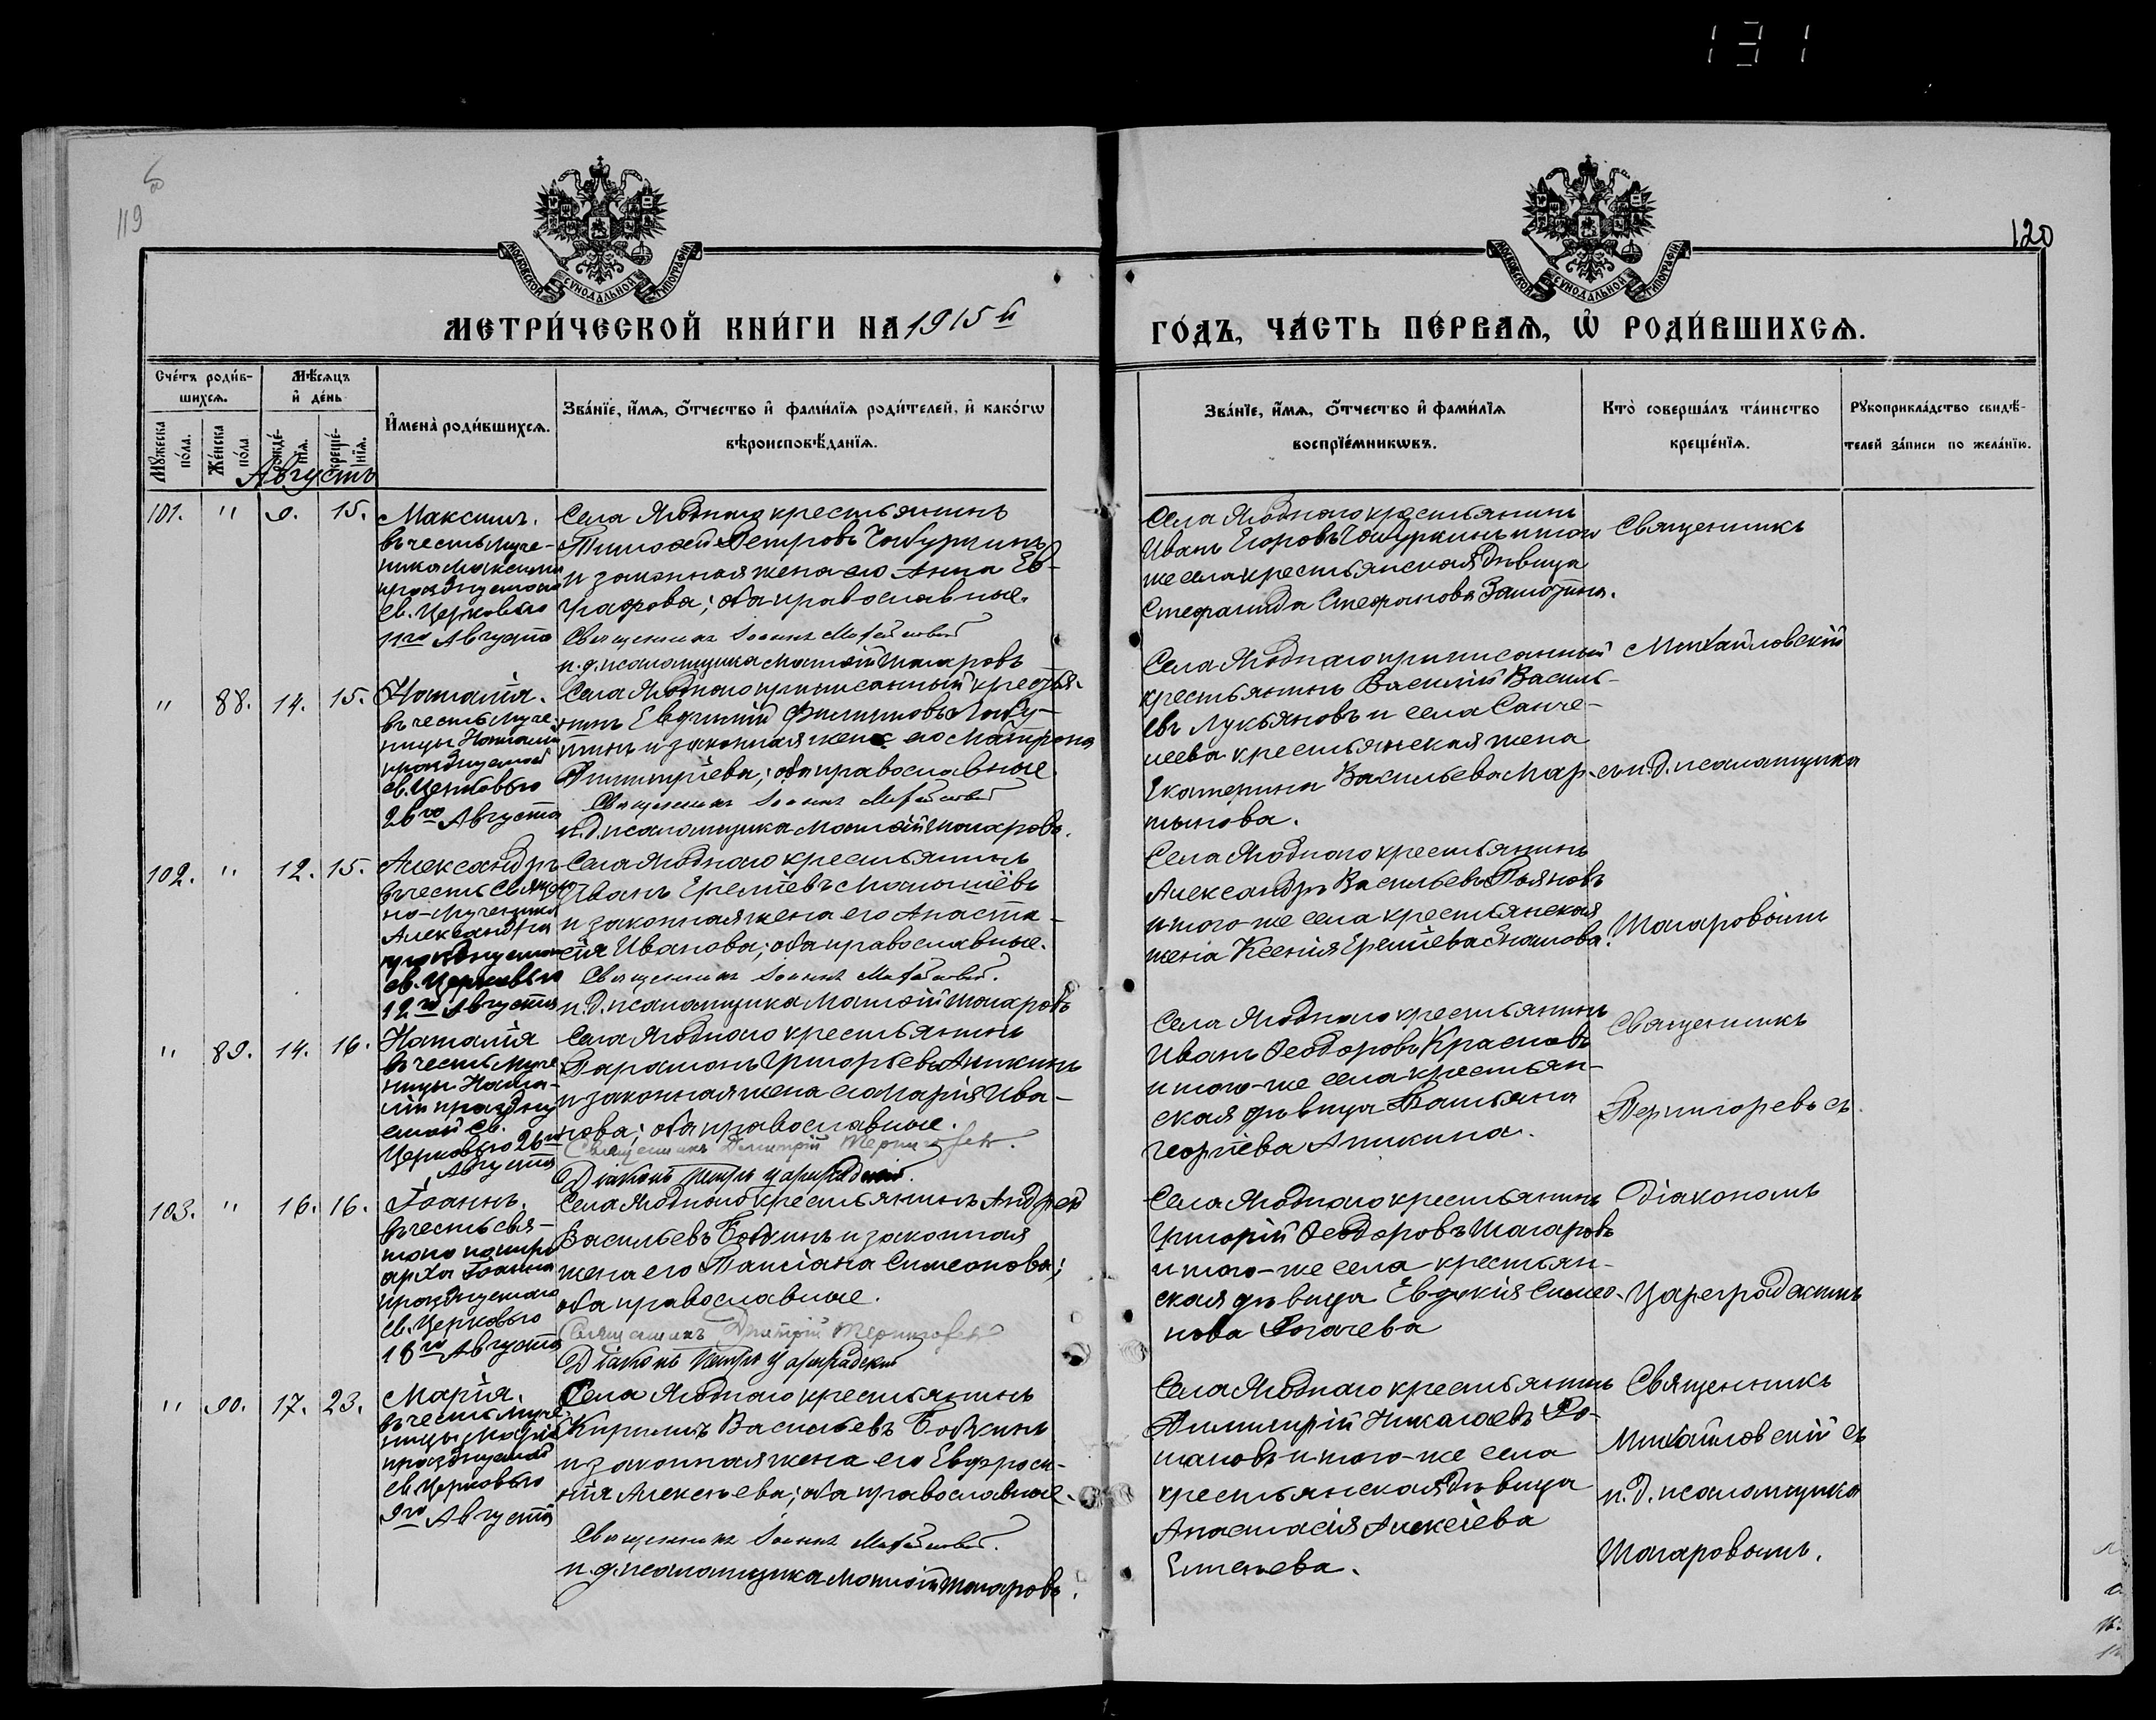 131
119
120
МОСКОВСКОЙ СѴНОДАЛЬНОЙ ТИПОГРАФІИ
МОСКОВСКОЙ СѴНОДАЛЬНОЙ ТИПОГРАФІИ
МЕТРИ́ЧЕСКОЙ КНИ́ГИ НА 1915 й
ГО́ДЪ, ЧА́СТЬ ПЕ́РВАѦ, Ѡ҆ РОДИ́ВШИХСѦ.
Сче́тъ роди́в-
шихсѧ.
Мѣ́сѧцъ
и҆ де́нь
Мꙋ́жеска
по́ла.
Же́нска
по́ла
рожде́-
нїѧ.
креще́-
нїѧ.
И҆мена̀ роди́вшихсѧ.
Зва́нїе, и҆́мѧ, ѻ҆́тчество и҆ фами́лїѧ роди́телей, и҆ како́гѡ
вѣроисповѣ́данїѧ.
Зва́нїе, и҆́мѧ, ѻ҆́тчество и҆ фами́лїѧ
воспрїе́мникѡвъ.
Кто̀ соверша́лъ та́инство
креще́нїѧ.
Рꙋкоприкла́дство свидѣ́-
телей за́писи по жела́нїю.
Августъ
101. " 9. 15.
Максимъ.
въ честь муче-
ника Максима
празднуемаго
св. Церковью
11го Августа
Села Ягоднаго крестьянинъ
Тимоѳей Петровъ Чабуркинъ
и законная жена его Анна Ев-
графова; оба православные.
Священникъ Іоаннъ Михайловскій
и. д. псаломщика Матѳій Шагаровъ
Села Ягоднаго крестьянинъ
Иванъ Егоровъ Чабуркинъ и того
же села крестьянская дѣвица
Стефанида Стефанова
Священникъ
Михайловскій
" 88. 14. 15.
Наталія.
въ честь муче-
ницы Наталіи
празднуемой
св. Церковью
26го Августа
Села Ягоднаго приписанный крестья-
нинъ Евфимій Филипповъ Лабу-
тинъ и законная жена его Матрона
Димитріева; оба православные.
Священникъ Іоаннъ Михайловскій
и. д. псаломщика Матѳій Шагаровъ.
Села Ягоднаго приписанный
крестьянинъ Василій Василь-
евъ Лукьяновъ и села Санче-
леева крестьянская жена
Екатерина Васильева Мар-
тынова.
съ и. д. псаломщика
102. " 12. 15.
Александръ
въ честь Священ
но-мученика
Александра
празднуемаго
св. Церковью
12го Августа
Села Ягоднаго крестьянинъ
Иванъ Ереміевъ Малышевъ
и законная жена его Анаста-
сія Иванова; оба православные.
Священникъ Іоаннъ Михайловскій.
и. д. псаломщика Матѳій Шагаровъ
Села Ягоднаго крестьянинъ
Александръ Васильевъ Пояновъ
и того-же села крестьянская
жена Ксенія Ереміева
Шагаровымъ
" 89. 14. 16.
Наталія
въ честь муче
ницы Ната-
ліи праздну
емой св.
Церковью 26го
Августа
Села Ягоднаго крестьянинъ
Парамонъ Григорьевъ Аникинъ
и законная жена его Марія Ива-
нова; оба православные.
Священникъ Димитрій Терпигоревъ.
Діаконъ Петръ Цареградскій.
Села Ягоднаго крестьянинъ
Иванъ Ѳеодоровъ Красновъ
и того-же села крестьян-
ская дѣвица Татьяна
Георгіева Аникина.
Священникъ
Терпигоревъ съ
103. " 16. 16.
Іоаннъ.
въ честь свя-
того патрі
арха Іоанна
празднуемаго
св. Церковью
18го Августа
Села Ягоднаго крестьянинъ Андрей
Васильевъ Бобкинъ и законная
жена его Татіана Симеонова;
оба православные.
Священникъ Димитрій Терпигоревъ
Діаконъ Петръ Цареградскій
Села Ягоднаго крестьянинъ
Григорій Ѳеодоровъ Шагаровъ
и того-же села крестьян-
ская дѣвица Евдокія Симео-
нова Рогачева
Діакономъ
Цареградскимъ
" 90. 17. 23.
Марія.
въ честь муче
ницы Маріи
празднуемой
св. Церковью
9го Августа
Села Ягоднаго крестьянинъ
Кириллъ Васильевъ Бобкинъ
и законная жена его Евфроси-
нія Алексѣева; оба православные.
Священникъ Іоаннъ Михайловскій.
и. д. псаломщика Матѳій Шагаровъ.
Села Ягоднаго крестьянинъ
Димитрій Николаевъ Ро-
мановъ и того-же села
крестьянская дѣвица
Анастасія Алексіева
Елисеева.
Священникъ
Михайловскій съ
и. д. псаломщика
Шагаровымъ.